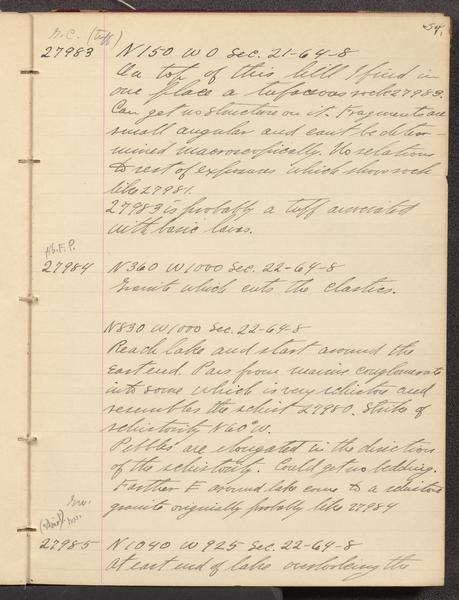 54.
G.C. (Tuff)
27983 N150 W0 Sec. 21-64-8
On top of this hill I find in
one place a tufaceous rock 27983.
Can get no structure on it. Fragments are
small angular and can't be deter-
mined macroscopically. No relations
to rest of exposures which show rock
like 27981.
27983 is probably a tuff associated
with basic lavas.
27984 N360 W1000 Sec. 22-64-8
Granite which cuts the clastics.
N830 W1000 Sec. 22-64-8
Reach lake and start around the
east end. Pass from massive conglomerate
into some which is very schistose and
resembles the schist 27980. Strike of
schistosity N60°W.
Pebbles are elongated in the direction
of the schistosity. Could get no bedding.
Farther E around lake come to a schistose
granite originally probably like 27984
27985 N1040 W925 Sec. 22-64-8
At east end of lake overlooking the